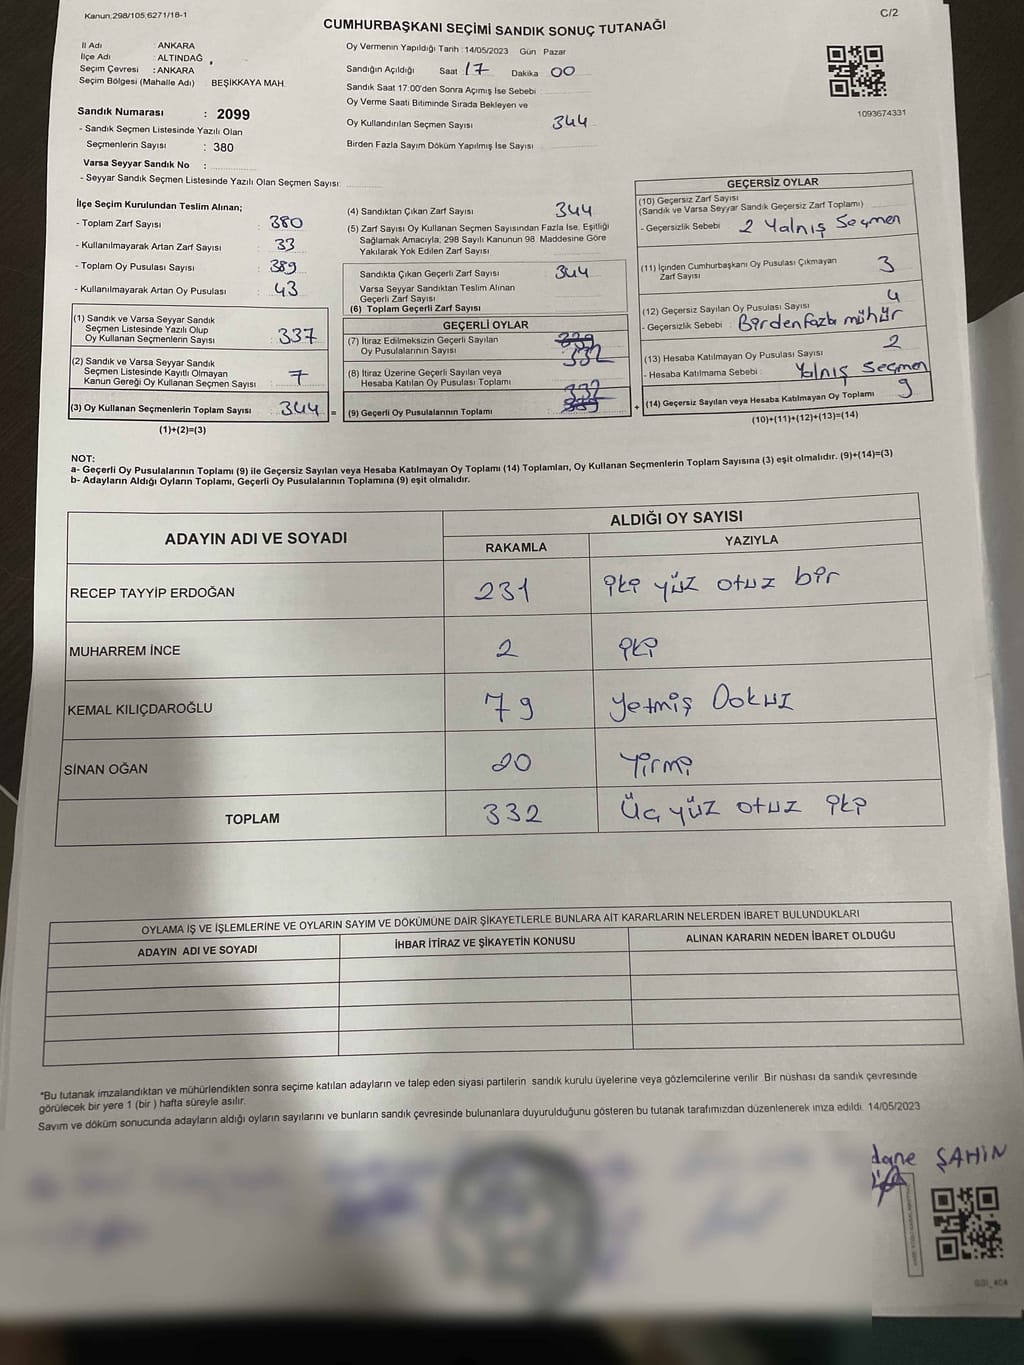 Kanun,298/105,6271/16-1
C/2
CUMHURBAŞKANI SEÇİMİ SANDIK SONUÇ TUTANAĞI
İl Adı : ANKARA
İlçe Adı : ALTINDAĞ
Seçim Çevresi : ANKARA
Seçim Bölgesi (Mahalle Adı) BEŞİKKAYA MAH.
Oy Vermenin Yapıldığı Tarih :14/05/2023 Gün Pazar
Sandığın Açıldığı Saat 17 Dakika 00
Sandık Saat 17:00'den Sonra Açımış İse Sebebi :
Oy Verme Saati Bitiminde Sırada Bekleyen ve
Oy Kullandırılan Seçmen Sayısı 344
Birden Fazla Sayım Döküm Yapılmış İse Sayısı
1093674331
Sandık Numarası : 2099
- Sandık Seçmen Listesinde Yazılı Olan
Seçmenlerin Sayısı : 380
Varsa Seyyar Sandık No :
- Seyyar Sandık Seçmen Listesinde Yazılı Olan Seçmen Sayısı:
İlçe Seçim Kurulundan Teslim Alınan;
- Toplam Zarf Sayısı : 380
- Kullanılmayarak Artan Zarf Sayısı : 33
- Toplam Oy Pusulası Sayısı : 389
- Kullanılmayarak Artan Oy Pusulası : 43
(1) Sandık ve Varsa Seyyar Sandık
Seçmen Listesinde Yazılı Olup
Oy Kullanan Seçmenlerin Sayısı : 337
(2) Sandık ve Varsa Seyyar Sandık
Seçmen Listesinde Kayıtlı Olmayan
Kanun Gereği Oy Kullanan Seçmen Sayısı : 7
(3) Oy Kullanan Seçmenlerin Toplam Sayısı : 344 =
(1)+(2)=(3)
(4) Sandıktan Çıkan Zarf Sayısı 344
(5) Zarf Sayısı Oy Kullanan Seçmen Sayısından Fazla İse, Eşitliği
Sağlamak Amacıyla, 298 Sayılı Kanunun 98. Maddesine Göre
Yakılarak Yok Edilen Zarf Sayısı
Sandıkta Çıkan Geçerli Zarf Sayısı 344
Varsa Seyyar Sandıktan Teslim Alınan
Geçerli Zarf Sayısı
(6) Toplam Geçerli Zarf Sayısı
GEÇERLİ OYLAR
(7) İtiraz Edilmeksizin Geçerli Sayılan
Oy Pusulalarının Sayısı 332
(8) İtiraz Üzerine Geçerli Sayılan veya
Hesaba Katılan Oy Pusulası Toplamı
(9) Geçerli Oy Pusulalarının Toplamı 332 +
GEÇERSİZ OYLAR
(10) Geçersiz Zarf Sayısı
(Sandık ve Varsa Seyyar Sandık Geçersiz Zarf Toplamı)
- Geçersizlik Sebebi 2 Yalnış Seçmen
(11) İçinden Cumhurbaşkanı Oy Pusulası Çıkmayan
Zarf Sayısı 3
(12) Geçersiz Sayılan Oy Pusulası Sayısı 4
- Geçersizlik Sebebi : Birden fazla mühür
(13) Hesaba Katılmayan Oy Pusulası Sayısı 2
- Hesaba Katılmama Sebebi : Yalnış Seçmen
(14) Geçersiz Sayılan veya Hesaba Katılmayan Oy Toplamı 9
(10)+(11)+(12)+(13)=(14)
NOT:
a- Geçerli Oy Pusulalarının Toplamı (9) ile Geçersiz Sayılan veya Hesaba Katılmayan Oy Toplamı (14) Toplamları, Oy Kullanan Seçmenlerin Toplam Sayısına (3) eşit olmalıdır. (9)+(14)=(3)
b- Adayların Aldığı Oyların Toplamı, Geçerli Oy Pusulalarının Toplamına (9) eşit olmalıdır.
ADAYIN ADI VE SOYADI
ALDIĞI OY SAYISI
RAKAMLA YAZIYLA
RECEP TAYYİP ERDOĞAN 231 iki yüz otuz bir
MUHARREM İNCE 2 iki
KEMAL KILIÇDAROĞLU 79 Yetmiş Dokuz
SİNAN OĞAN 20 Yirmi
TOPLAM 332 Üç yüz otuz iki
OYLAMA İŞ VE İŞLEMLERİNE VE OYLARIN SAYIM VE DÖKÜMÜNE DAİR ŞİKAYETLERLE BUNLARA AİT KARARLARIN NELERDEN İBARET BULUNDUKLARI
ADAYIN ADI VE SOYADI İHBAR İTİRAZ VE ŞİKAYETİN KONUSU ALINAN KARARIN NEDEN İBARET OLDUĞU
*Bu tutanak imzalandıktan ve mühürlendikten sonra seçime katılan adayların ve talep eden siyasi partilerin sandık kurulu üyelerine veya gözlemcilerine verilir Bir nüshası da sandık çevresinde
görülecek bir yere 1 (bir ) hafta süreyle asılır.
Sayım ve döküm sonucunda adayların aldığı oyların sayılarını ve bunların sandık çevresinde bulunanlara duyurulduğunu gösteren bu tutanak tarafımızdan düzenlenerek imza edildi. 14/05/2023
dane ŞAHİN